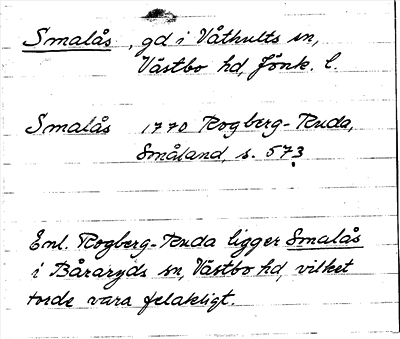 Smalås, gd i Våthults sn,
Västbo hd, Jönk. l.
Smalås 1770 Rogberg-Ruda,
Småland, s. 573
Enl. Rogberg-Ruda ligger Smalås
i Båraryds sn, Västbo hd, vilket
torde vara felaktigt.